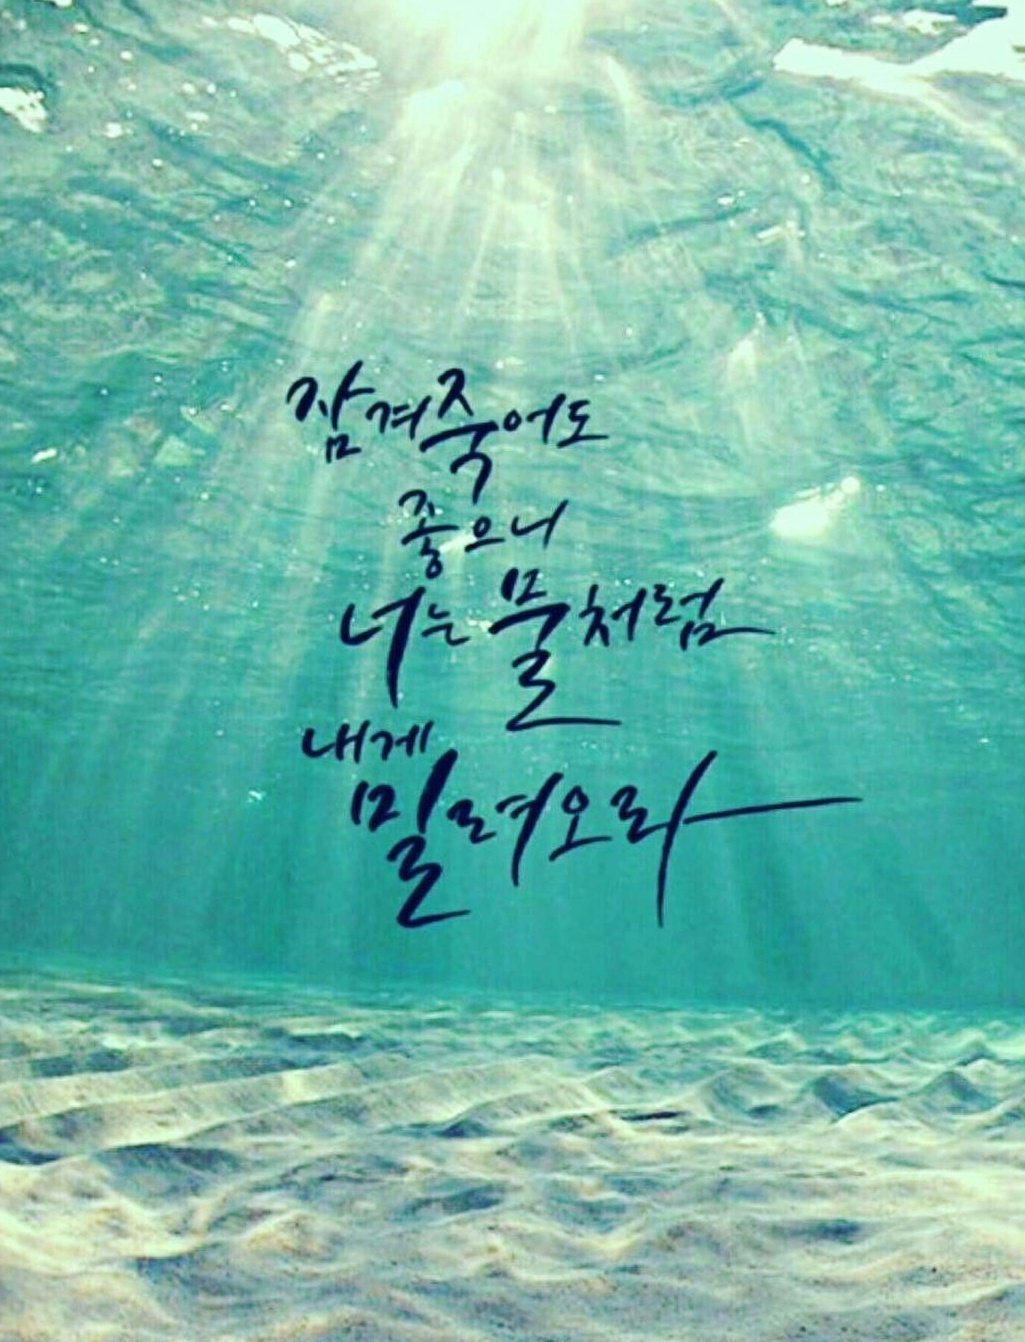 잠겨죽어도
좋으니
너는 물처럼
내게
밀려오라